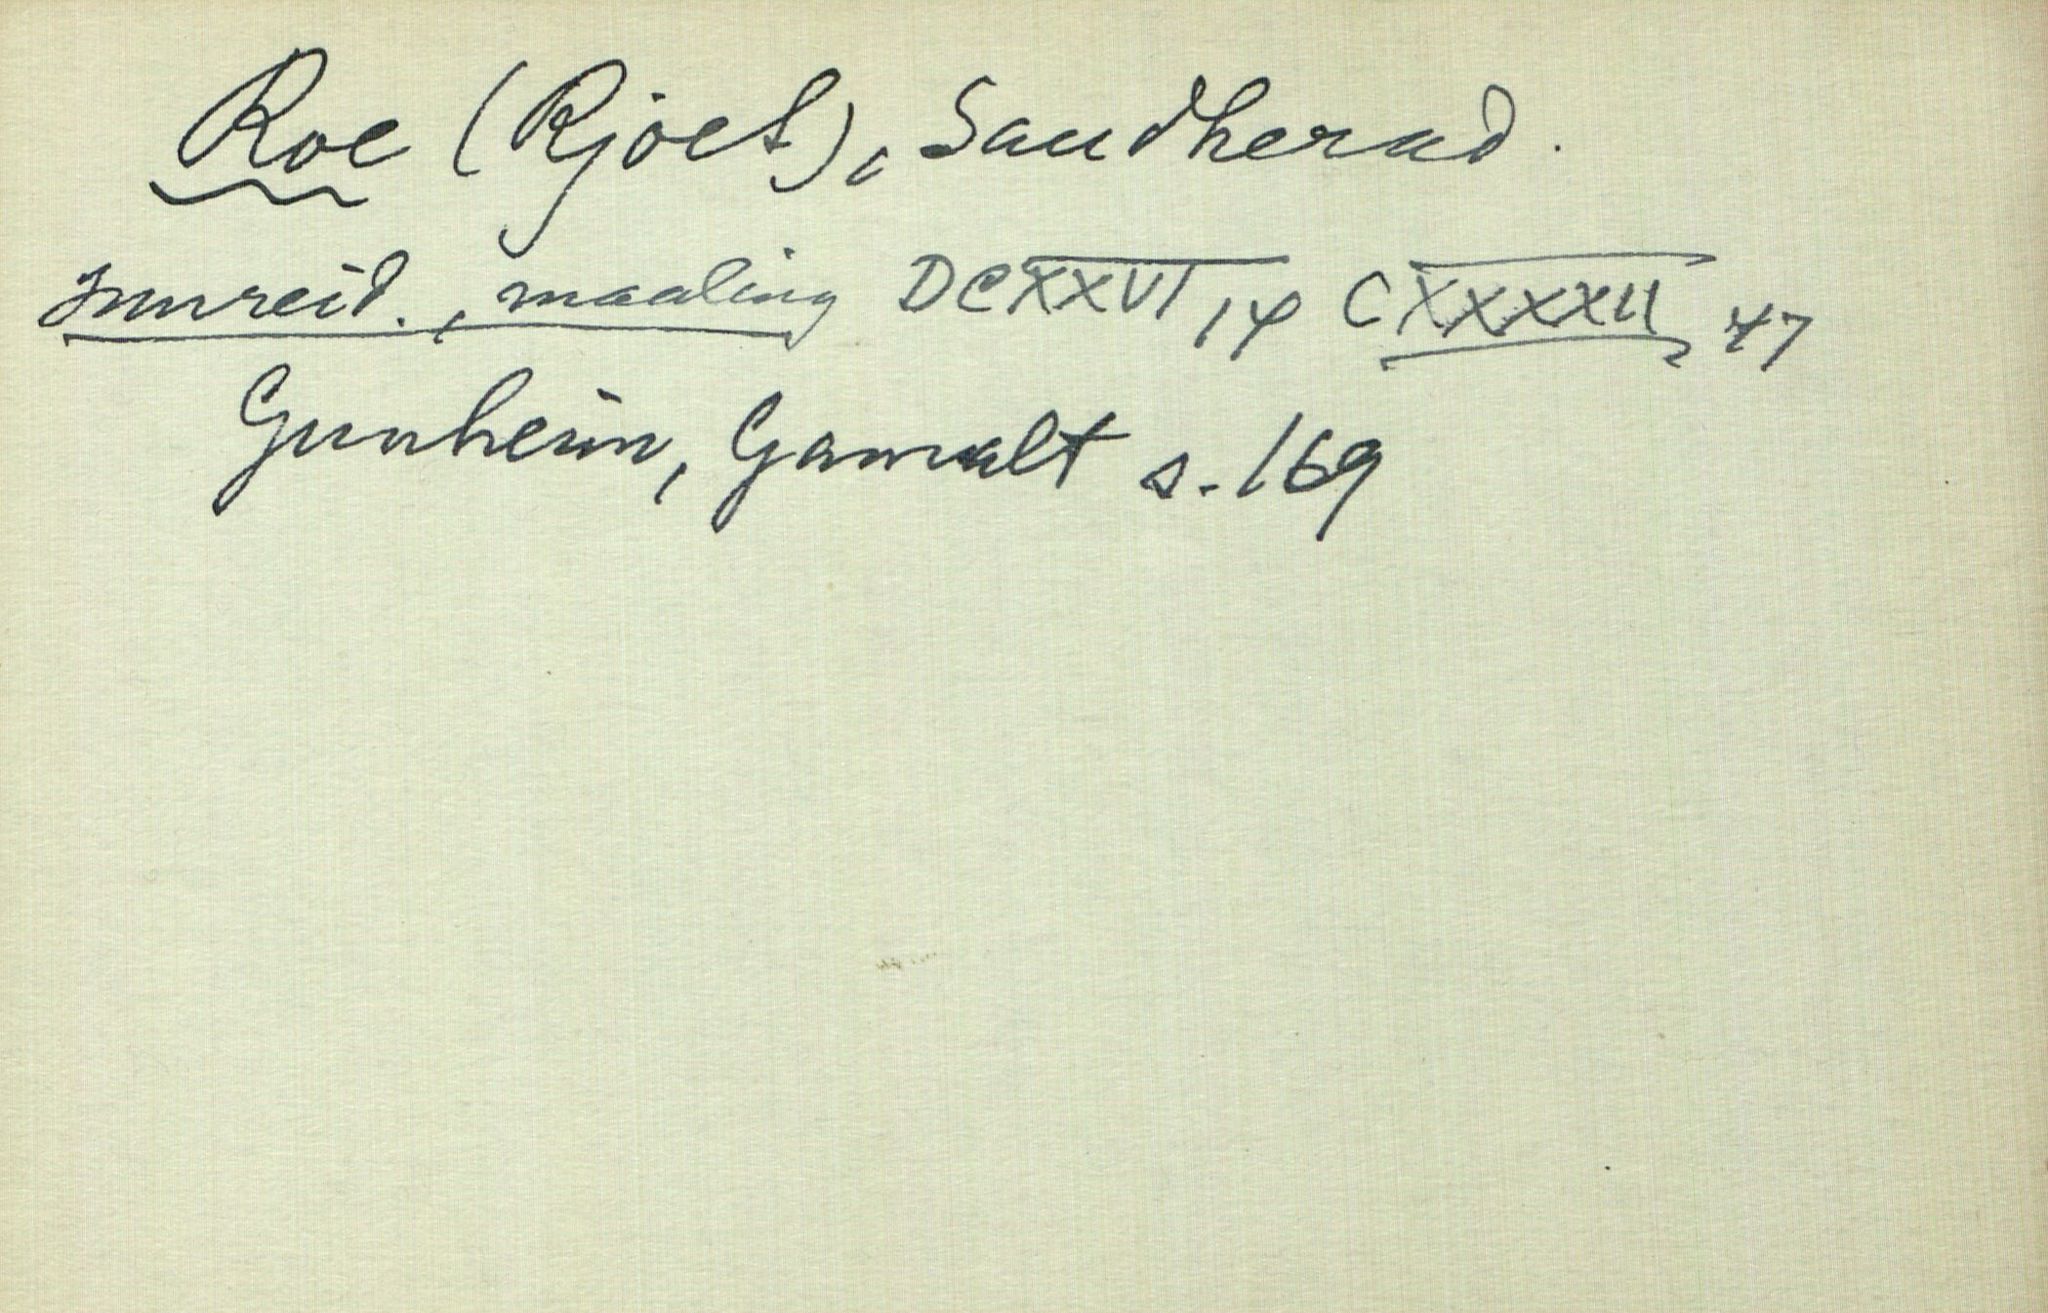 Roe (Rjoet), Saudherad.
Innreid., maaling DCXXVI 14 CXXXXII 47
Gunheim, Gamalt s. 169